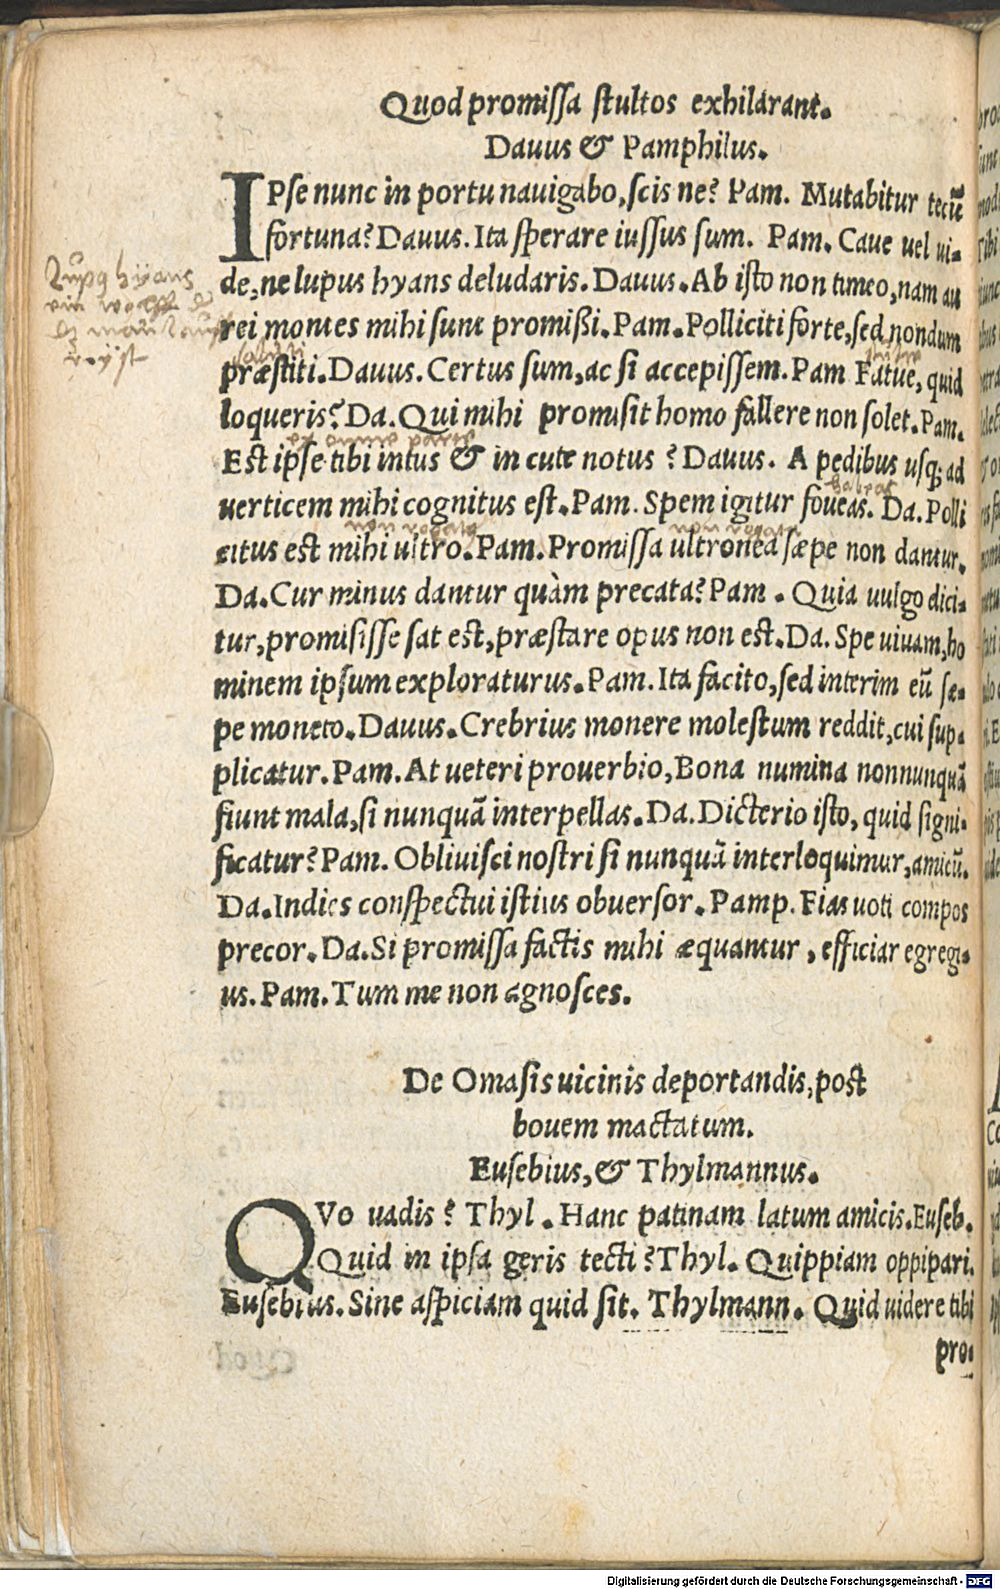 Quod promissa stultos exhilarant.
Dauus & Pamphilus.
IPse nunc in portu nauigabo, scis ne? Pam. Mutabitur tecũ
fortuna? Dauus. Ita sperare iussus sum. Pam. Caue uel ui-
de, ne lupus hyans deludaris. Dauus. Ab isto non timeo, nam au
rei montes mihi sunt promißi. Pam. Polliciti forte, sed nondum
præstiti. Dauus. Certus sum, ac si accepissem. Pam Fatue, quid
loqueris? Da. Qui mihi promisit homo fallere non solet. Pam.
ex omni parte
Est ipse tibi intus & in cute notus? Dauus. A pedibus usq; ad
uerticem mihi cognitus est. Pam. Spem igitur foueas. Da. Polli
habeas
non rogata non rogata
citus est mihi ultro. Pam. Promissa ultronea sæpe non dantur.
Da. Cur minus dantur quàm precata? Pam. Quia uulgo dici-
tur, promisisse sat est, præstare opus non est. Da. Spe uiuam, ho
minem ipsum exploraturus. Pam. Ita facito, sed interim eũ sæ-
pe moneto. Dauus. Crebrius monere molestum reddit, cui sup-
plicatur. Pam. At ueteri prouerbio, Bona numina nonnunquã
fiunt mala, si nunquã interpellas. Da. Dicterio isto, quid signi-
ficatur? Pam. Obliuisci nostri si nunquã interloquimur, amicũ.
Da. Indies conspectui istius obuersor. Pamp. Fias uoti compos
precor. Da. Si promissa factis mihi æquantur, efficiar egregi-
us. Pam. Tum me non agnosces.
De Omasis uicinis deportandis, post
bouem mactatum.
Eusebius, & Thylmannus.
QVo uadis? Thyl. Hanc patinam latum amicis. Euseb.
Quid in ipsa geris tecti? Thyl. Quippiam oppipari.
Eusebius. Sine aspiciam quid sit. Thylmann. Quid uidere tibi
pro-
Lupus hyans
Digitalisierung gefördert durch die Deutsche Forschungsgemeinschaft - DFG